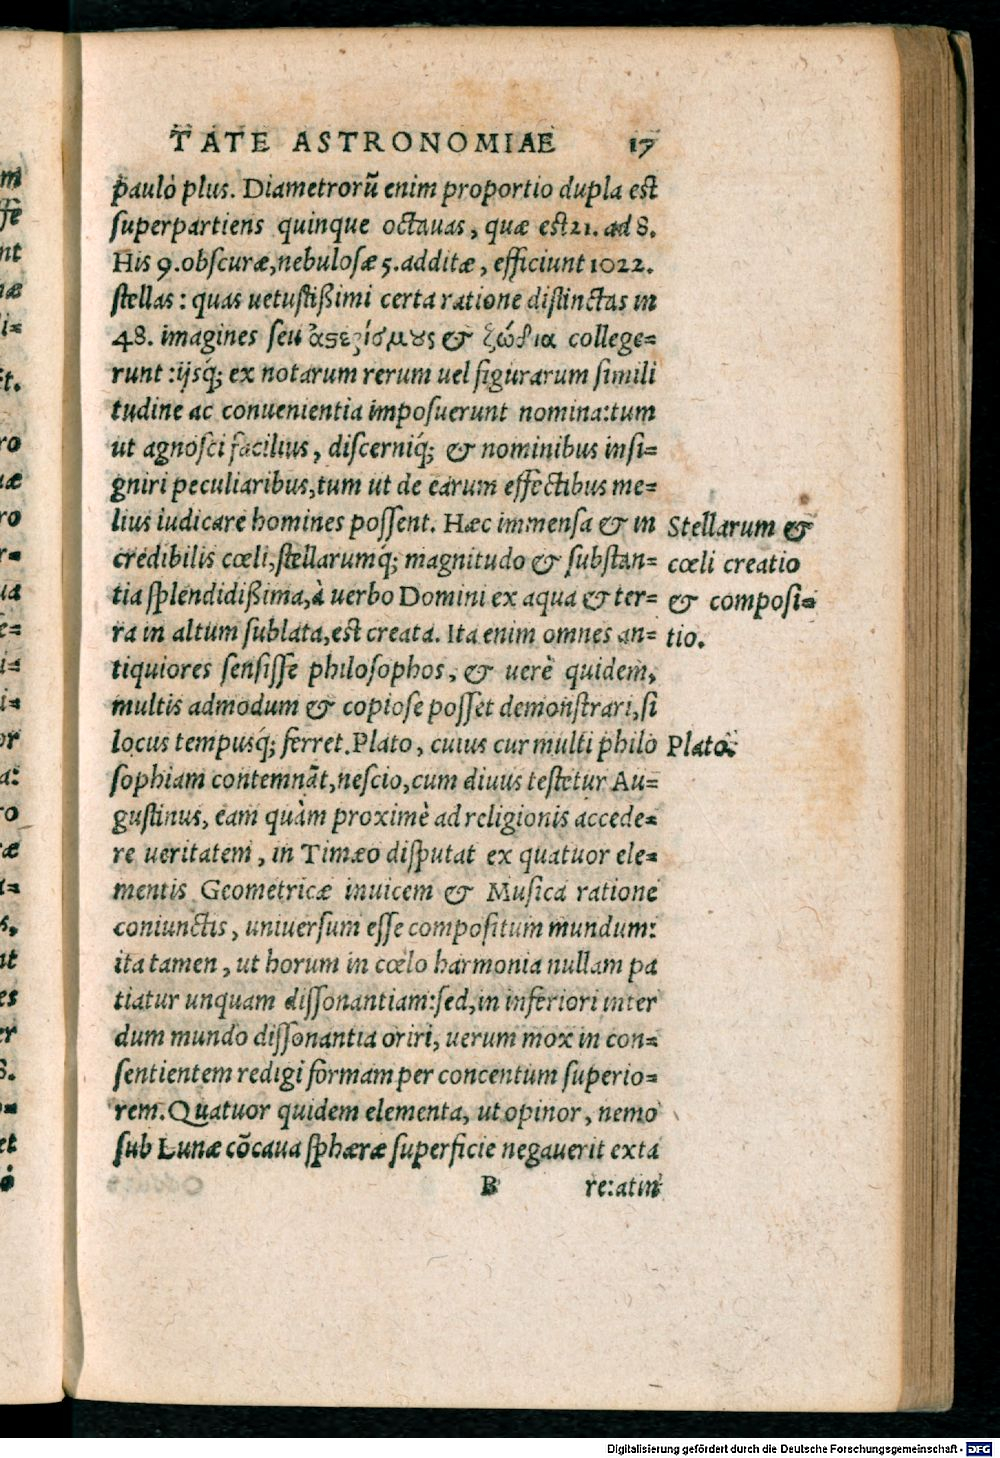 TATE ASTRONOMIAE 17
paulò plus. Diametrorũ enim proportio dupla est
superpartiens quinque octauas, quæ est 21. ad 8.
His 9. obscuræ, nebulosæ 5. additæ, efficiunt 1022.
stellas: quas uetustißimi certa ratione distinctas in
48. imagines seu ἀϛερίσμȣς & ζώδια college=
runt: ijsq́; ex notarum rerum uel figurarum simili
tudine ac conuenientia imposuerunt nomina: tum
ut agnosci facilius, discerniq́; & nominibus insi=
gniri peculiaribus, tum ut de earum effectibus me=
lius iudicare homines possent. Hæc immensa & in
Stellarum &
credibilis cœli, stellarumq́; magnitudo & substan=
cœli creatio
tia splendidißima, à uerbo Domini ex aqua & ter=
& composi=
ra in altum sublata, est creata. Ita enim omnes an=
tio.
tiquiores sensisse philosophos, & uerè quidem,
multis admodum & copiose posset demonstrari, si
locus tempusq́; ferret. Plato, cuius cur multi philo
Plato.
sophiam contemnãt, nescio, cum diuus testetur Au=
gustinus, eam quàm proximè ad religionis accede=
re ueritatem, in Timæo disputat ex quatuor ele=
mentis Geometricæ inuicem & Musica ratione
coniunctis, uniuersum esse compositum mundum:
ita tamen, ut horum in cœlo harmonia nullam pa
tiatur unquam dissonantiam: sed, in inferiori inter
dum mundo dissonantia oriri, uerum mox in con=
sentientem redigi formam per concentum superio=
rem. Quatuor quidem elementa, ut opinor, nemo
sub Lunæ cõcaua sphæræ superficie negauerit exta
B re: atin
Digitalisierung gefördert durch die Deutsche Forschungsgemeinschaft - DFG